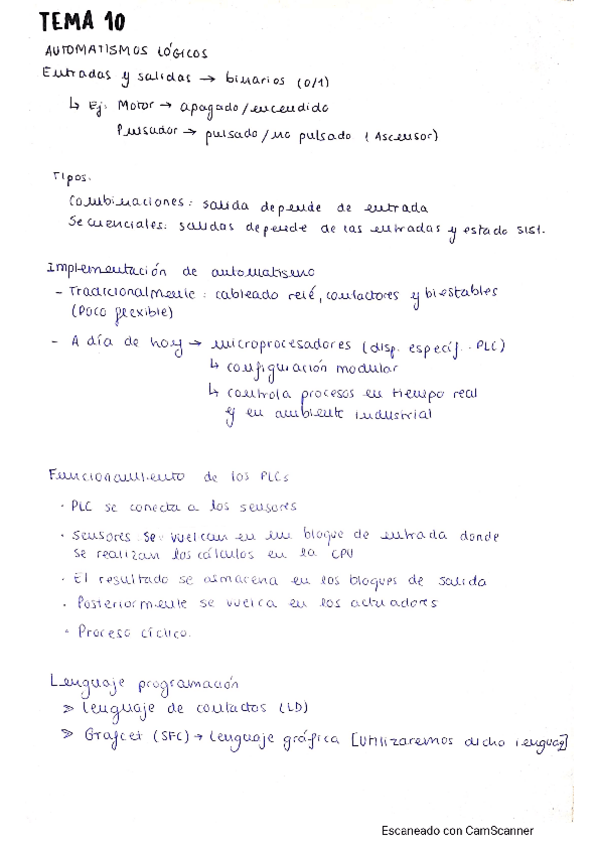 TEMA 10
AUTOMATISMOS LÓGICOS
Entradas y salidas → binarios (0/1)
↳ Ej: Motor → apagado/encendido
Pulsador → pulsado/no pulsado (Ascensor)
Tipos.
Combinaciones: salida depende de entrada
Secuenciales: salidas depende de las entradas y estado sist.
Implementación de automatismo
- Tradicionalmente: cableado relé, contactores y biestables
(Poco flexible)
- A día de hoy → microprocesadores (disp. específ. PLC)
↳ configuración modular
↳ controla procesos en tiempo real
y en ambiente industrial
Funcionamiento de los PLCs
· PLC se conecta a los sensores
· Sensores se vuelcan en un bloque de entrada donde
se realizan los cálculos en la CPU
· El resultado se almacena en los bloques de salida
· Posteriormente se vuelca en los actuadores
· Proceso cíclico.
Lenguaje programación
> Lenguaje de contactos (LD)
> Grafcet (SFC) → Lenguaje gráfica [Utilizaremos dicho lenguaj]
Escaneado con CamScanner